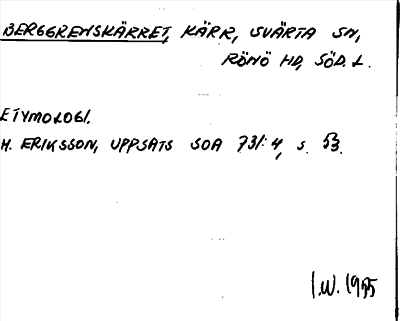 BERGGRENSKÄRRET, KÄRR, SVÄRTA SN,
RÖNÖ HD, SÖD. L.
ETYMOLOGI.
H. ERIKSSON, UPPSATS SOA 731:4, s. 53.
I.W. 1955